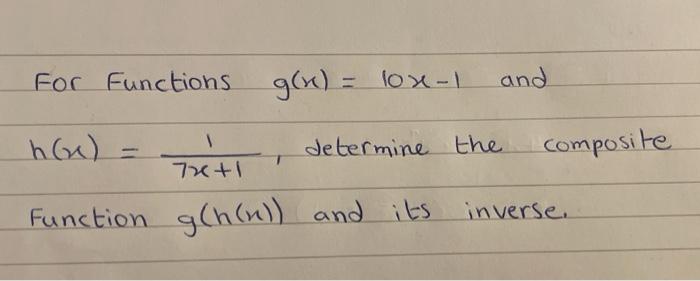 For Functions g(x) = 10x-1 and
h(x) = 1/(7x+1), determine the composite
Function g(h(x)) and its inverse.